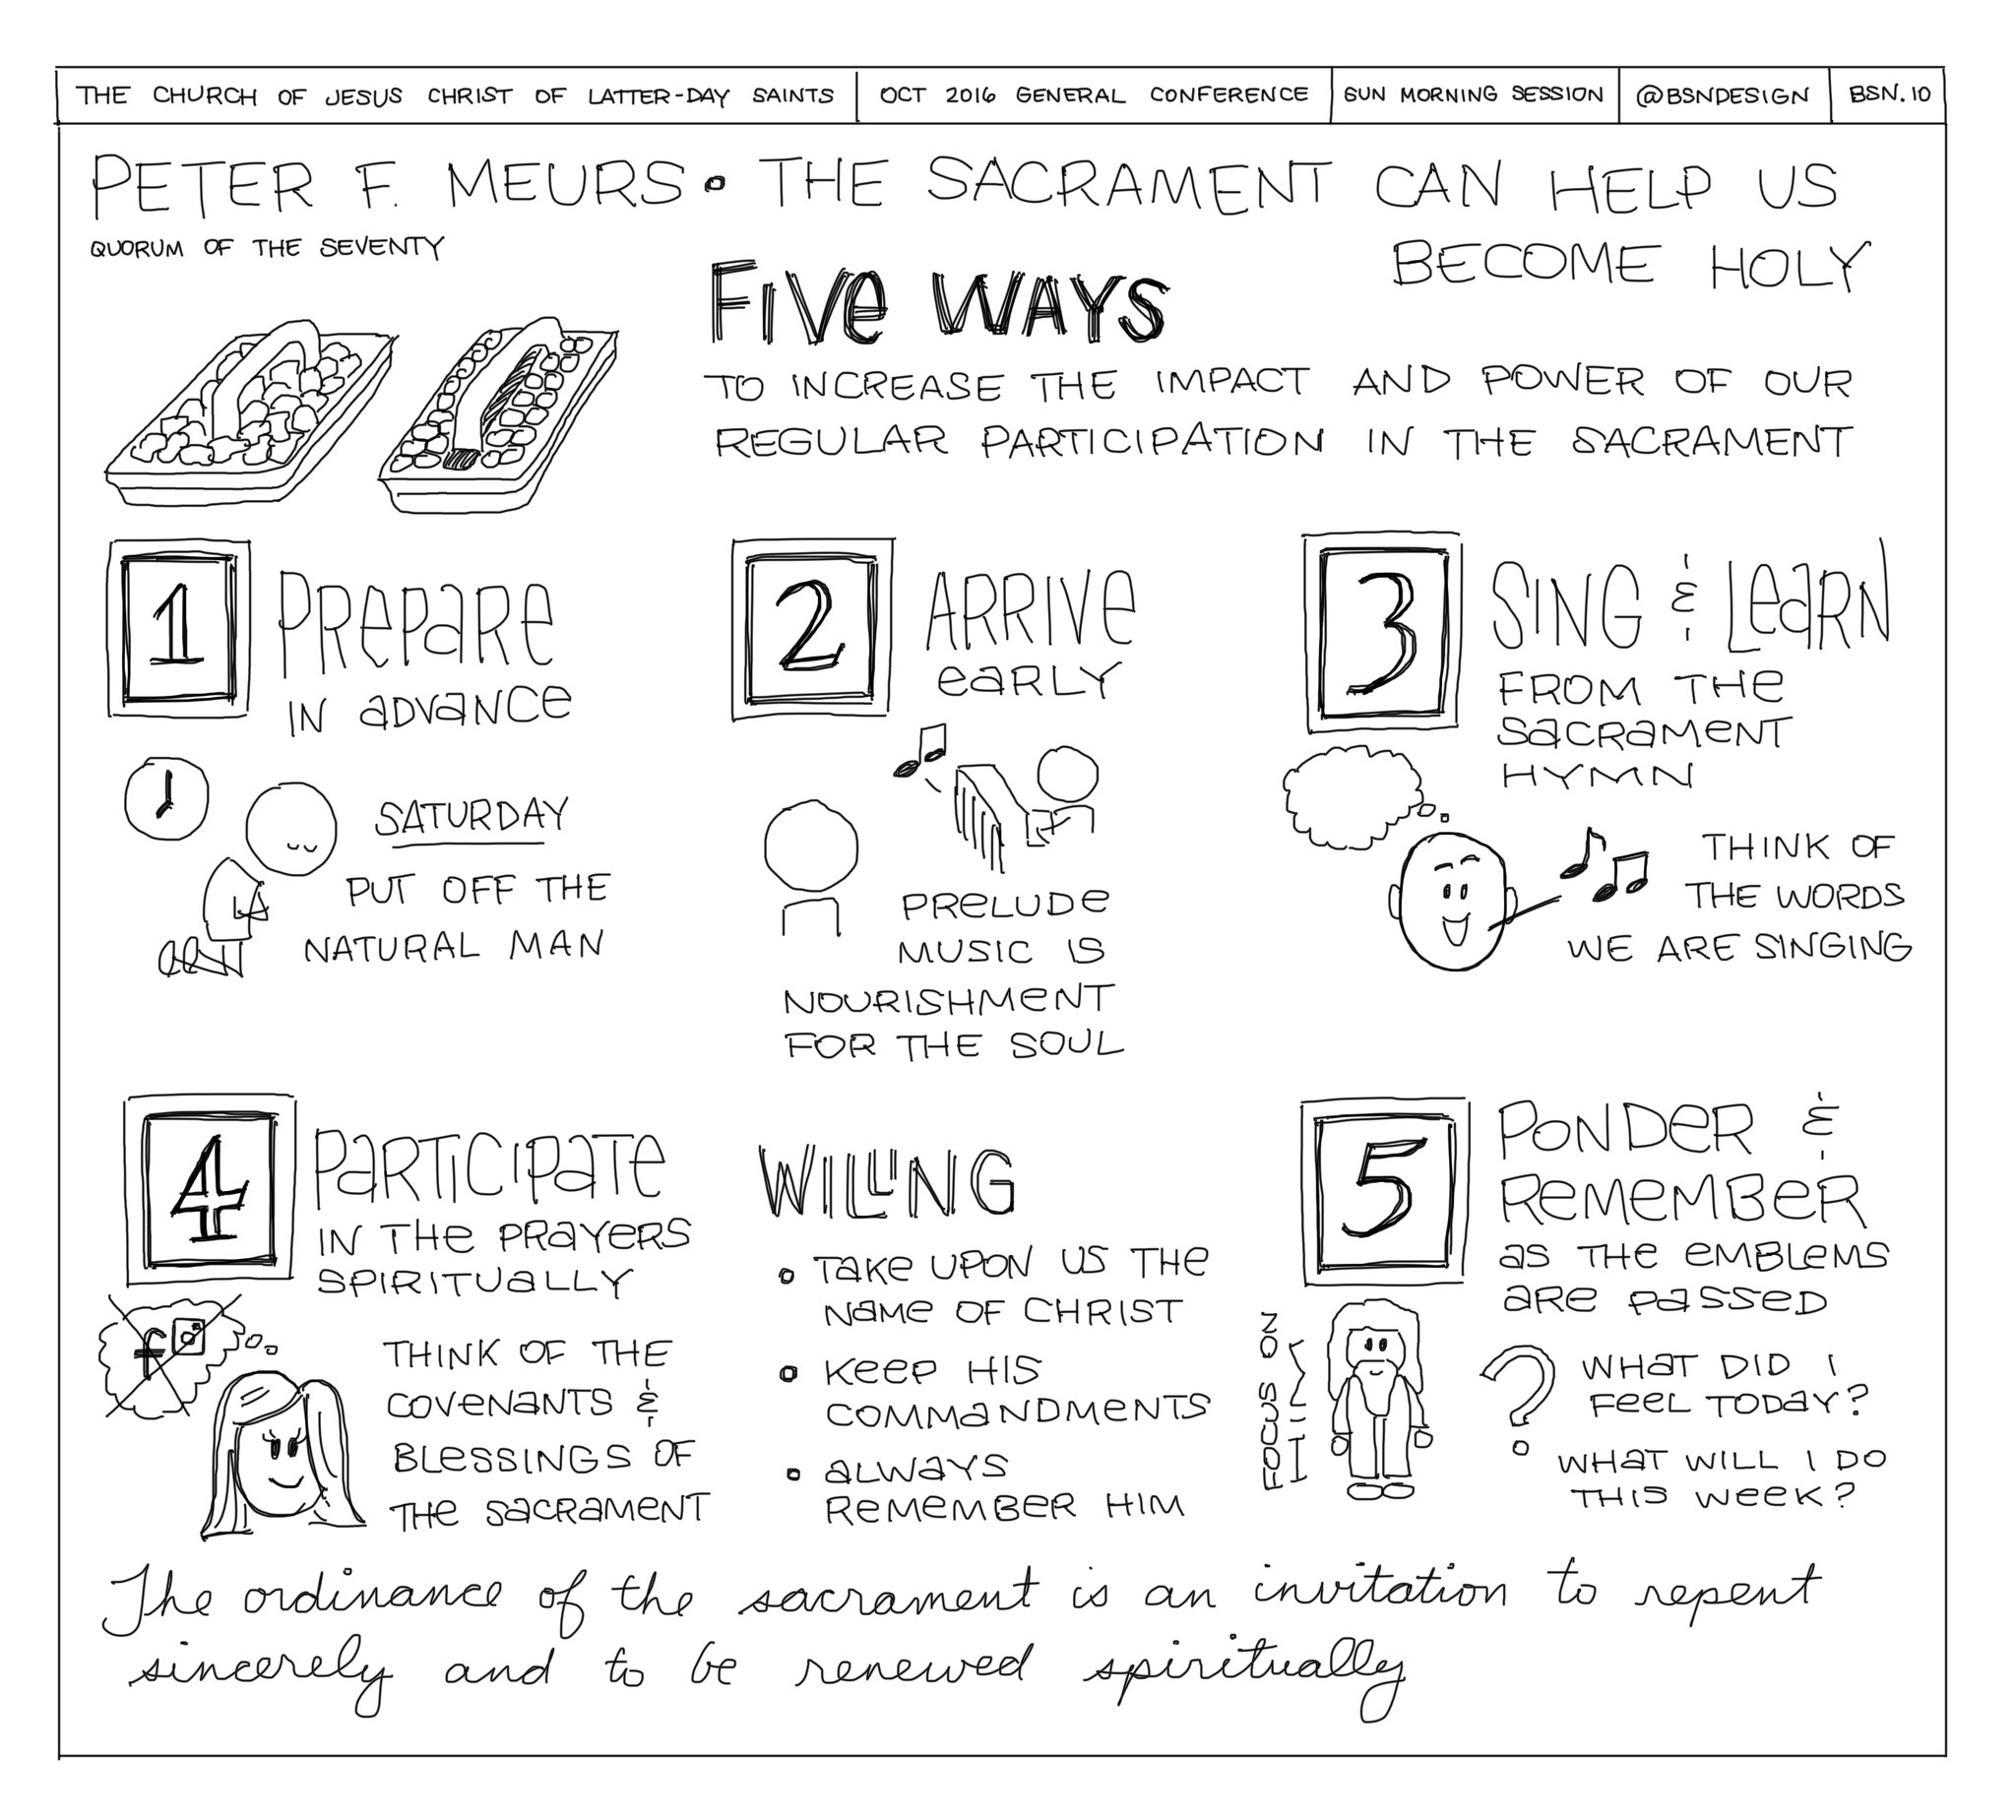 THE CHURCH OF JESUS CHRIST OF LATTER-DAY SAINTS
OCT 2016 GENERAL CONFERENCE
SUN MORNING SESSION
@BSNDESIGN
BSN.10
PETER F. MEURS • THE SACRAMENT CAN HELP US
BECOME HOLY
QUORUM OF THE SEVENTY
FIVE WAYS
TO INCREASE THE IMPACT AND POWER OF OUR
REGULAR PARTICIPATION IN THE SACRAMENT
1
PREPARE
IN ADVANCE
SATURDAY
PUT OFF THE
NATURAL MAN
2
ARRIVE
EARLY
PRELUDE
MUSIC IS
NOURISHMENT
FOR THE SOUL
3
SING & LEARN
FROM THE
SACRAMENT
HYMN
THINK OF
THE WORDS
WE ARE SINGING
4
PARTICIPATE
IN THE PRAYERS
SPIRITUALLY
f
THINK OF THE
COVENANTS &
BLESSINGS OF
THE SACRAMENT
WILLING
• TAKE UPON US THE
NAME OF CHRIST
• KEEP HIS
COMMANDMENTS
• ALWAYS
REMEMBER HIM
5
PONDER &
REMEMBER
AS THE EMBLEMS
ARE PASSED
FOCUS ON
HIM
?
WHAT DID I
FEEL TODAY?
WHAT WILL I DO
THIS WEEK?
The ordinance of the sacrament is an invitation to repent
sincerely and to be renewed spiritually